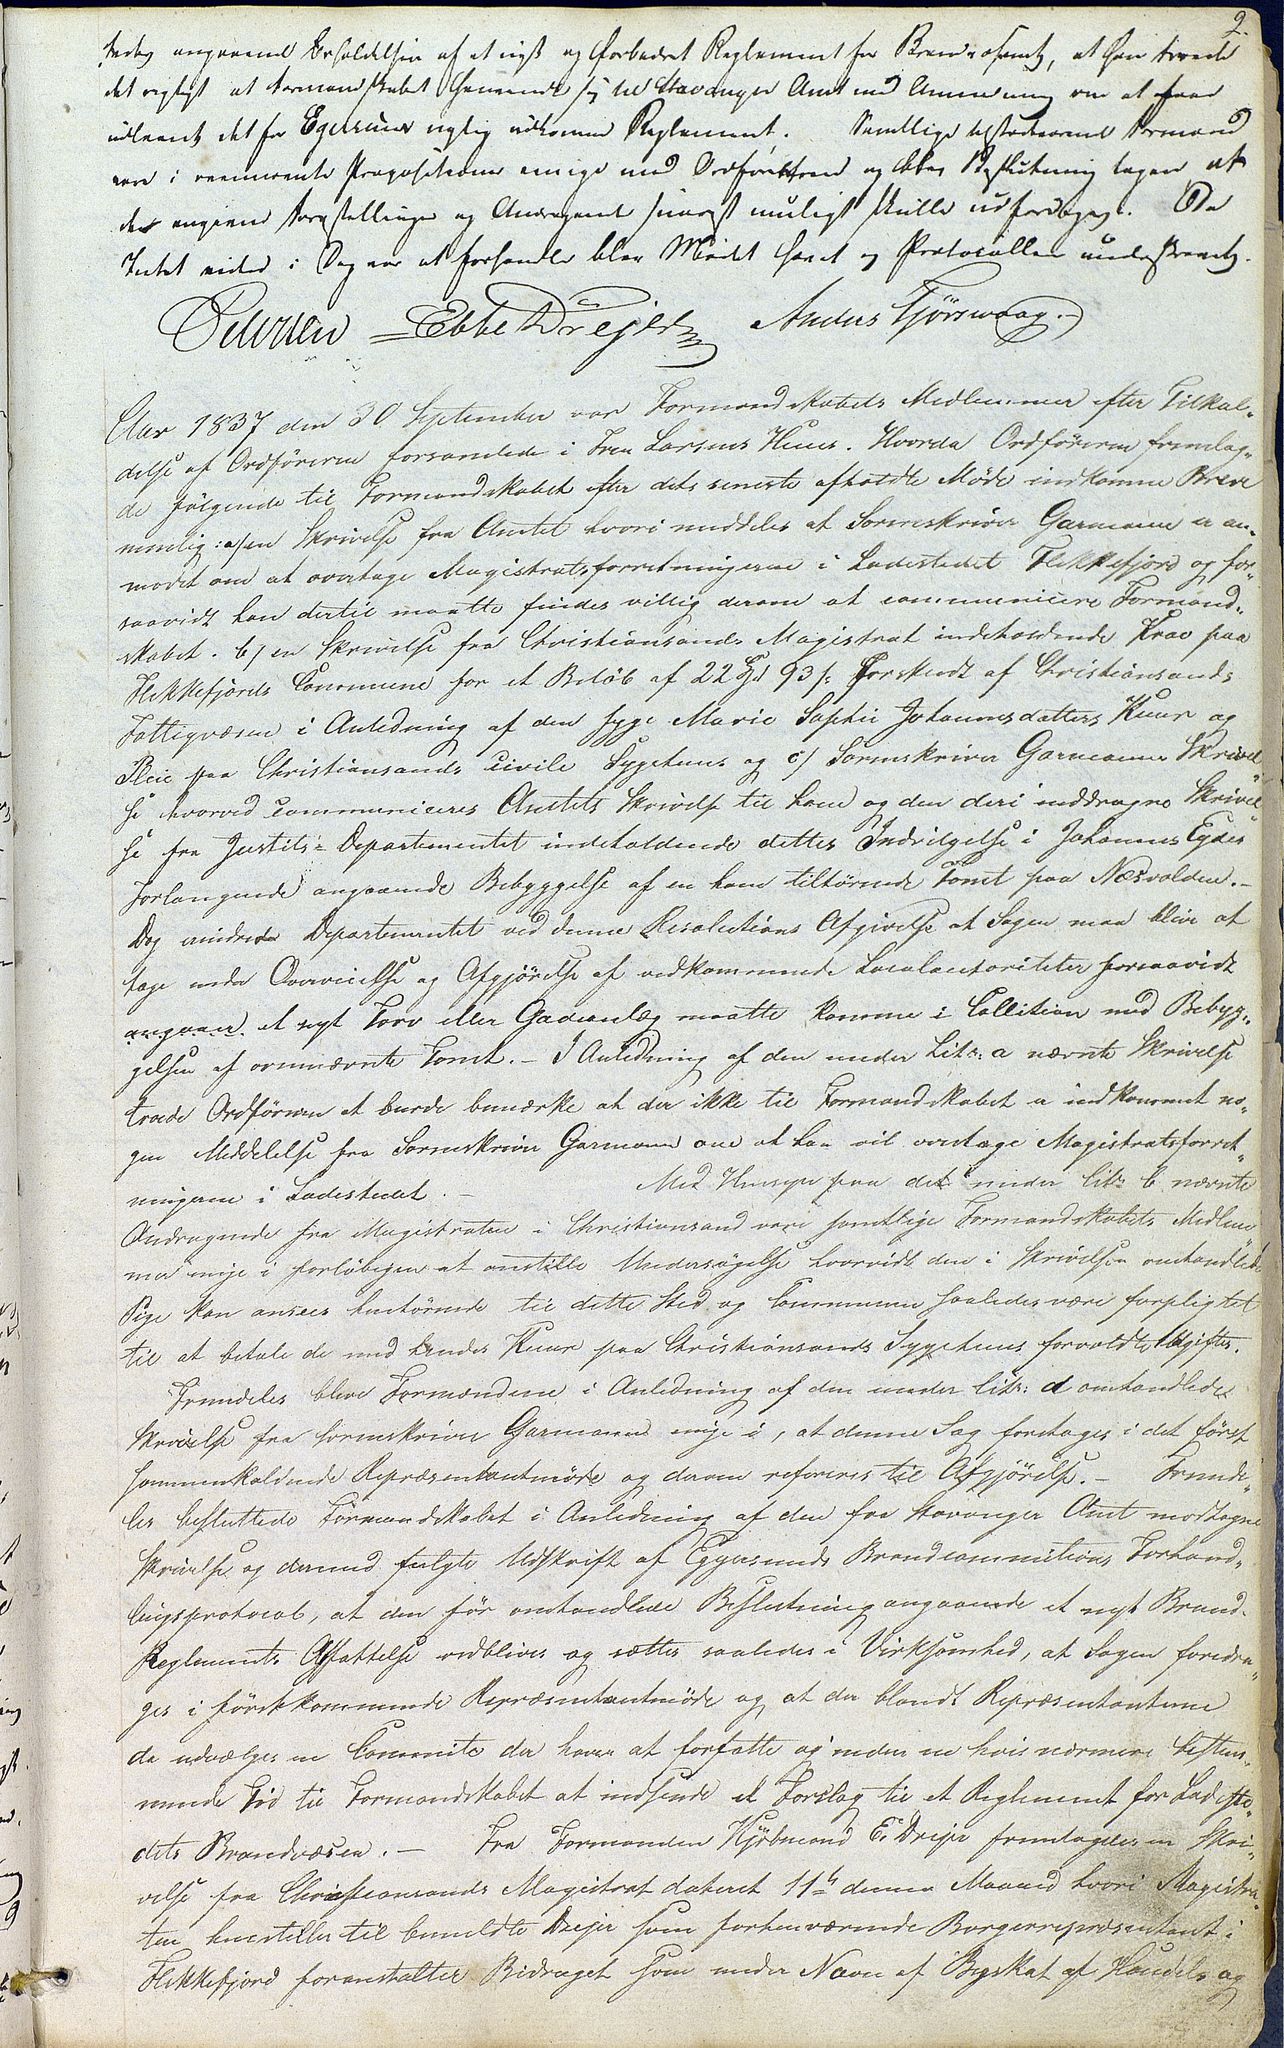 2.
angaaende Erholdelsen af et nyt og forbedret Reglement for Brandvæsenet, at han troede
det rigtigt at Formandskabet henvendte sig til Stavanger Amt med Anmodning om at faae
udlaant det for Egersund nylig udkomne Reglement. Samtlige tilstædeværende Formænd
vare i ovennævnte Propositioner enige med Ordføreren og blev Beslutning tagen at
de angivne Forestillinger og Andragende snarest muligt skulle udfærdiges. Da
Intet videre i Dag var at forhandle blev Mødet hævet og Protocollen underskrevet.
Petersen Ebbe Drejer Anders Fjørsvaag.
Aar 1837 den 30 September var Formandskabets Medlemmer efter Tilkal„
delse af Ordføreren forsamlede i Larsens Huus. Hvorda Ordføreren fremlag„
de følgende til Formandskabet efter dets seneste afholdte Møde indkomne Breve
nemlig: a/ en Skrivelse fra Amtet hvori meddeles at Sorenskriver Garmann er an„
modet om at overtage Magistratsforretningerne i Ladestedet Flekkefjord og for„
saavidt han dertil maatte findes villig derom at communicere Formand„
skabet. b/ en Skrivelse fra Christiansands Magistrat indeholdende Krav paa
Flekkefjords Commune for et Beløb af 22 Spd 93 s. Forskudt af Christiansands
Fattigvæsen i Anledning af den syge Marie Sophie Johannesdatters Kuur og
Pleie paa Christiansands civile Sygehuus og c/ Sorenskriver Garmanns Skrivel„
se hvorved communiceres Amtets Skrivelse til ham og den deri inddragne Skrivel„
se fra Justits-Departementet indeholdende dettes Indvilgelse i Johannes Eydes
Forlangende angaaende Bebyggelse af en ham tilhørende Tomt paa Næsvolden.—
Dog Departementet ved denne Resolutions Afgivelse at Sagen maa blive at
tage under Overveielse og Afgjørelse af vedkommende Localautoriteter forsaavidt
angaaer et nyt Torv eller Gadeanlæg maatte komme i Collition med Bebyg„
gelsen af ovennævnte Tomt.— I Anledning af den under Litr: a nævnte Skrivelse
troede Ordføreren at burde bemærke at der ikke til Formandskabet er indkommet no„
gen Meddelelse fra Sorenskriver Garmann om at han vil overtage Magistratsforret„
ningerne i Ladestedet.— Med Hensyn paa det under litr b nævnte
Andragende fra Magistraten i Christiansand vare samtlige Formandskabets Medlem
mer enige i forløbigen at anstille Undersøgelse hvorvidt den i Skrivelsen omhandlede
Pige kan ansees henhørende til dette Sted og Commune saaledes være forpligtet
til at betale de med hendes Kuur paa Christiansands Sygehuus forvoldte Udgifter.
Fremdeles bleve Formændene i Anledning af den under litr: d omhandlede
Skrivelse fra Sorenskriver Garmann enige i, at denne Sag foretages i det først
sammenkaldende Repræsentantmøde og derom refereres til Afgjørelse.— Fremde„
les besluttede Formandskabet i Anledning af den fra Stavanger Amt modtagne
Skrivelse og dermed fulgte Udskrift af Eggersunds Brandcommissions Forhand„
lingsprotocol, at den før omhandlede Beslutning angaaende et nyt Brand-
Reglements Affattelse vedblives og sættes saaledes i Virksomhed, at Sagen foredra„
ges i førstkommende Repræsentantmøde og at der blandt Repræsentanterne
da udvælges en Committe der haver at forfatte og inden en hvis nærmere bestem„
mende Tid til Formandskabet at indsende et Forslag til et Reglement for Ladeste„
dets Brandvæsen.— Fra Formanden Kjøbmand E. Drejer fremlagdes en Skri„
velse fra Christiansands Magistrat dateret 11te dennes Maaned hvori Magistra„
ten henstiller til bemeldte Drejer som forhenværende Borgerrepræsentant i
Flekkefjord foranstalter Bidraget som under Navn af Byskat af Handels og